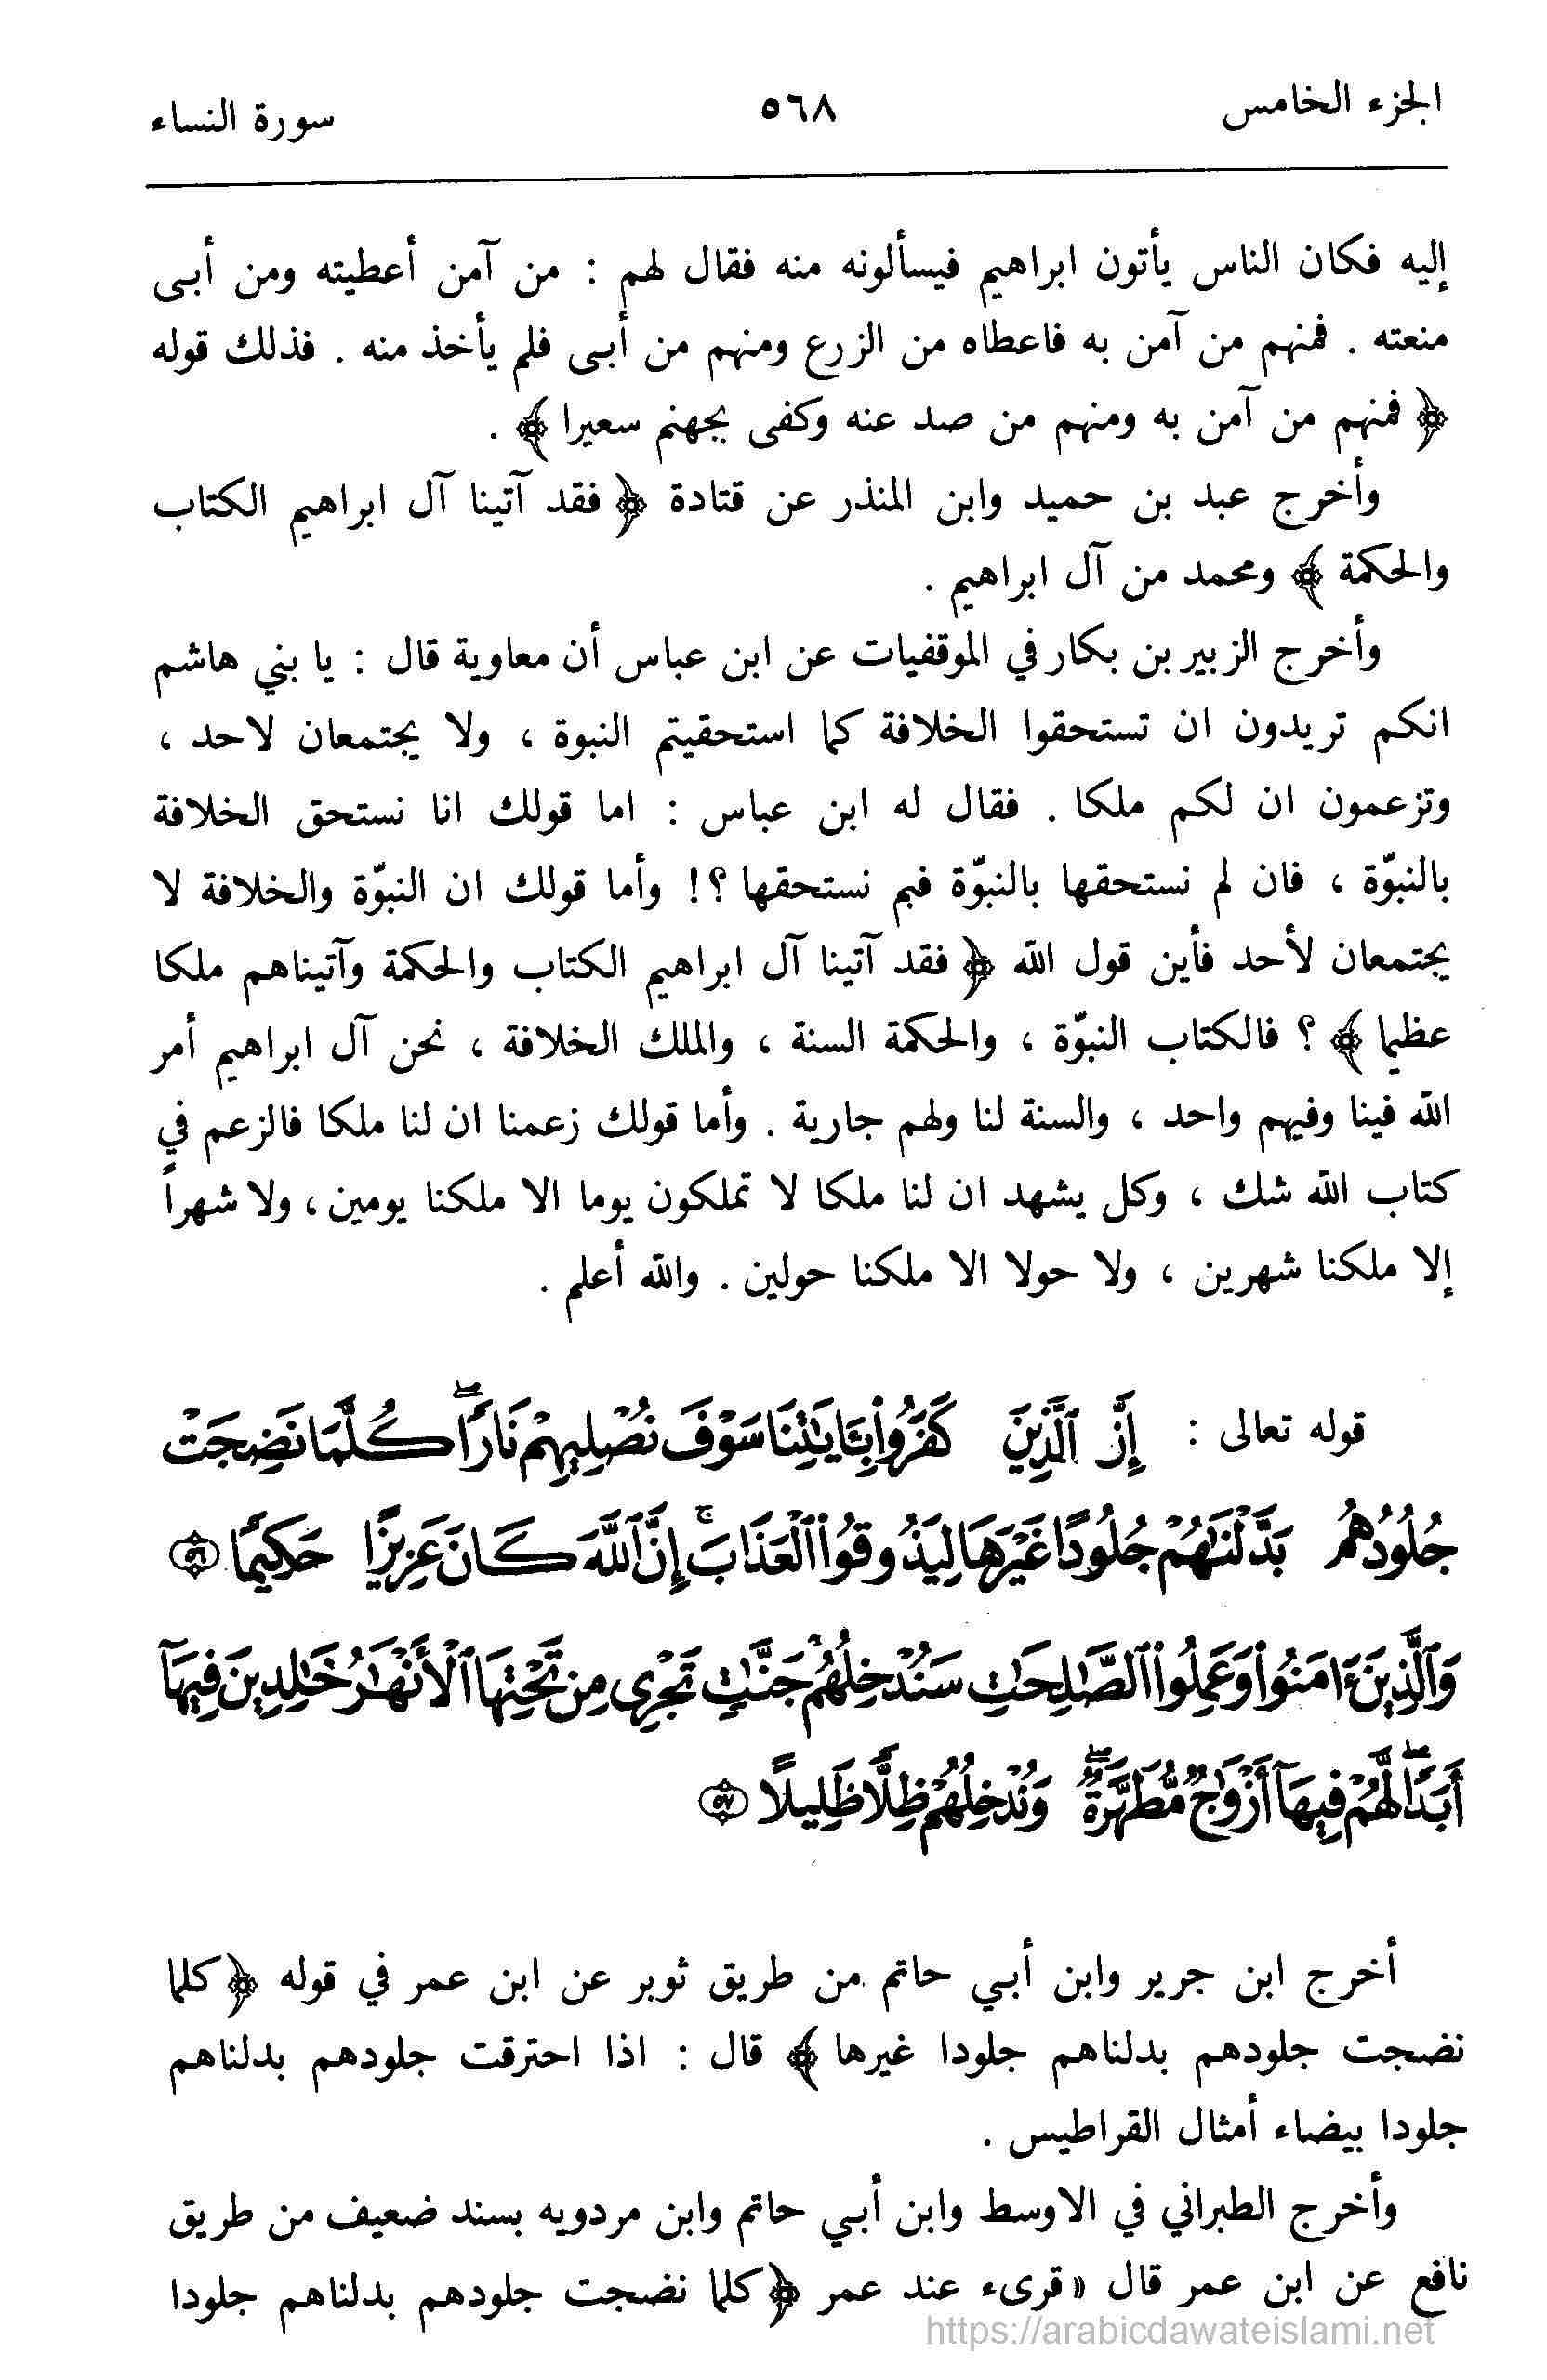 الجزء الخامس ٥٦٨ سورة النساء
إليه فكان الناس يأتون ابراهيم فيسألونه منه فقال لهم : من آمن أعطيته ومن أبـى
منعته . فمنهم من آمن به فاعطاه من الزرع ومنهم من أبـى فلم يأخذ منه . فذلك قوله
﴿ فمنهم من آمن به ومنهم من صد عنه وكفى بجهنم سعيرا ﴾ .
وأخرج عبد بن حميد وابن المنذر عن قتادة ﴿ فقد آتينا آل ابراهيم الكتاب
والحكمة ﴾ ومحمد من آل ابراهيم .
وأخرج الزبير بن بكار في الموقفيات عن ابن عباس أن معاوية قال : يا بني هاشم
انكم تريدون ان تستحقوا الخلافة كما استحقيتم النبوة ، ولا يجتمعان لاحد ،
وتزعمون ان لكم ملكا . فقال له ابن عباس : اما قولك انا نستحق الخلافة
بالنبوّة ، فان لم نستحقها بالنبوّة فبم نستحقها ؟! وأما قولك ان النبوّة والخلافة لا
يجتمعان لأحد فأين قول الله ﴿ فقد آتينا آل ابراهيم الكتاب والحكمة وآتيناهم ملكا
عظيما ﴾ ؟ فالكتاب النبوّة ، والحكمة السنة ، والملك الخلافة ، نحن آل ابراهيم أمر
الله فينا وفيهم واحد ، والسنة لنا ولهم جارية . وأما قولك زعمنا ان لنا ملكا فالزعم في
كتاب الله شك ، وكل يشهد ان لنا ملكا لا تملكون يوما الا ملكنا يومين ، ولا شهراً
إلا ملكنا شهرين ، ولا حولا الا ملكنا حولين . والله أعلم .
قوله تعالى : إِنَّ ٱلَّذِينَ كَفَرُوا۟ بِـَٔايَـٰتِنَا سَوْفَ نُصْلِيهِمْ نَارًۭا ۖ كُلَّمَا نَضِجَتْ
جُلُودُهُم بَدَّلْنَـٰهُمْ جُلُودًا غَيْرَهَا لِيَذُوقُوا۟ ٱلْعَذَابَ ۚ إِنَّ ٱللَّهَ كَانَ عَزِيزًا حَكِيمًۭا ﴿٥٦﴾
وَٱلَّذِينَ ءَامَنُوا۟ وَعَمِلُوا۟ ٱلصَّـٰلِحَـٰتِ سَنُدْخِلُهُمْ جَنَّـٰتٍۢ تَجْرِى مِن تَحْتِهَا ٱلْأَنْهَـٰرُ خَـٰلِدِينَ فِيهَآ
أَبَدًۭا ۖ لَّهُمْ فِيهَآ أَزْوَٰجٌۭ مُّطَهَّرَةٌۭ ۖ وَنُدْخِلُهُمْ ظِلًّۭا ظَلِيلًا ﴿٥٧﴾
أخرج ابن جرير وابن أبـي حاتم من طريق ثوير عن ابن عمر في قوله ﴿ كلما
نضجت جلودهم بدلناهم جلودا غيرها ﴾ قال : اذا احترقت جلودهم بدلناهم
جلودا بيضاء أمثال القراطيس .
وأخرج الطبراني في الاوسط وابن أبـي حاتم وابن مردويه بسند ضعيف من طريق
نافع عن ابن عمر قال « قرىء عند عمر ﴿ كلما نضجت جلودهم بدلناهم جلودا
https://arabicdawateislami.net